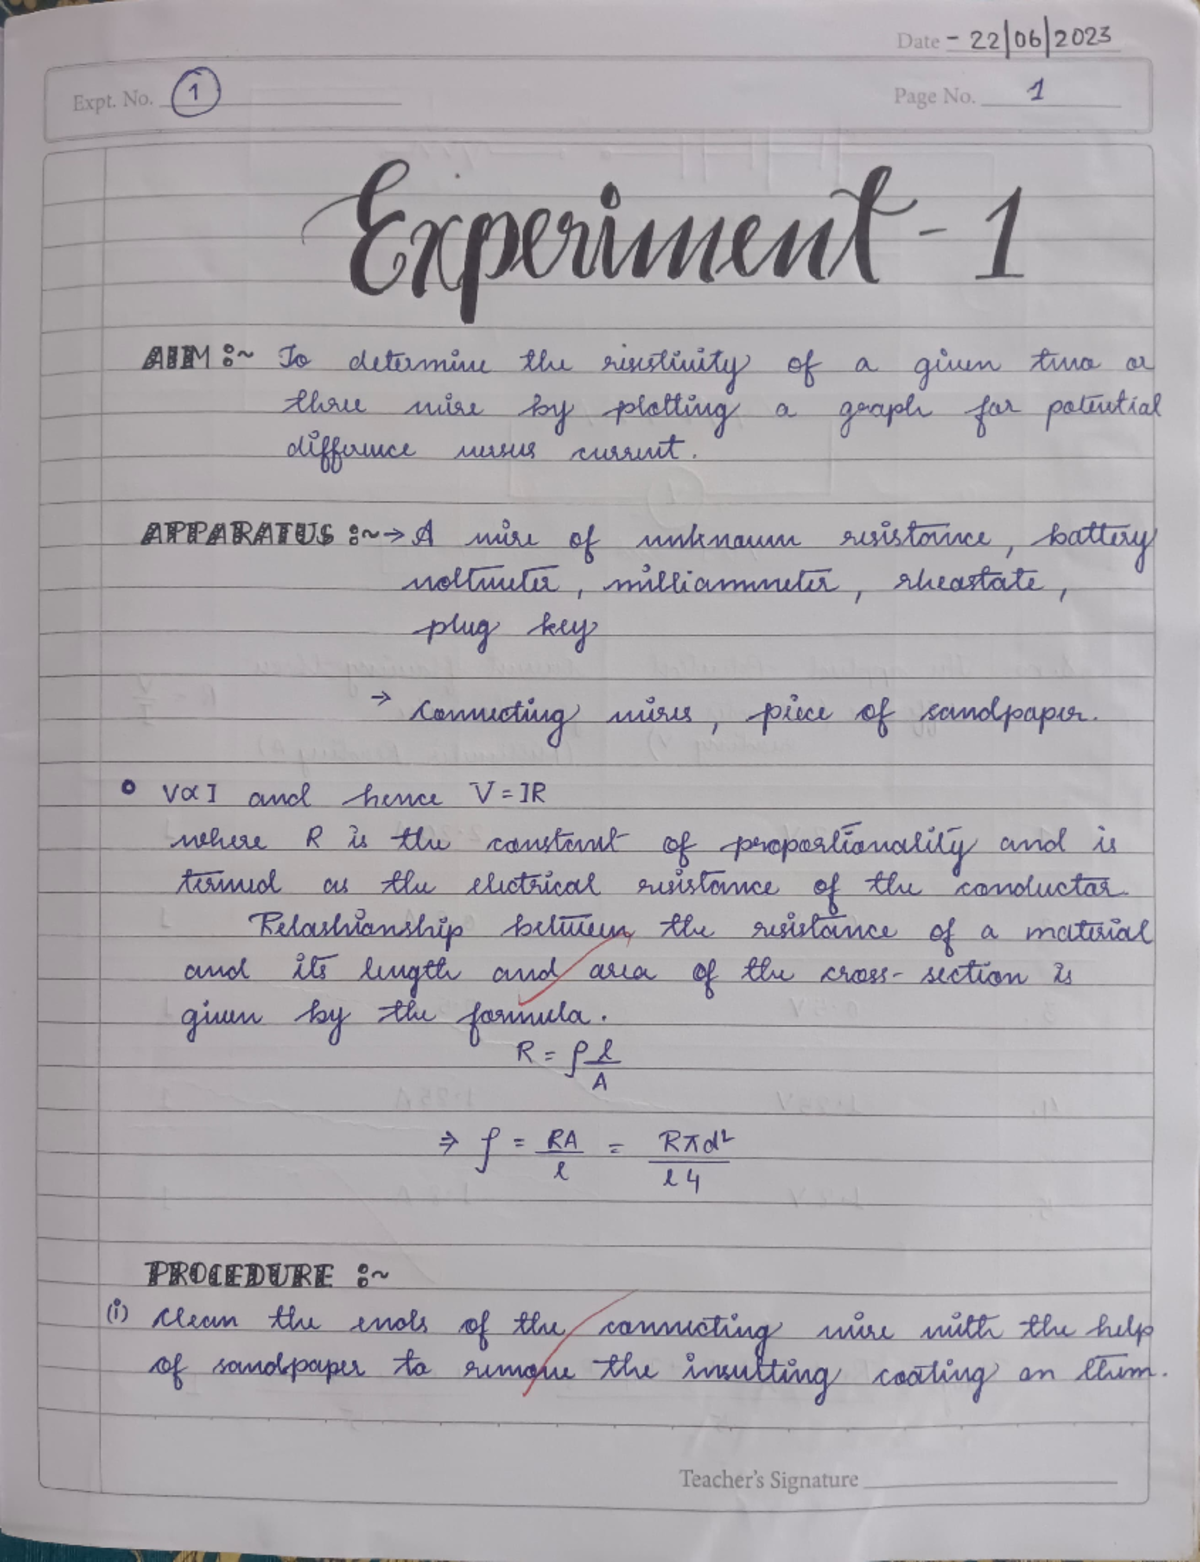 Date - 22/06/2023
Expt. No. 1
Page No. 1
Experiment - 1
AIM :~ To determine the risistivity of a given two or
three wire by plotting a graph for potential
difference versus current.
APPARATUS :~ → A wire of unknown resistance, battery
voltmeter, milliammeter, rheostate,
plug key
→ Connecting wires, piece of sandpaper.
V∝I and hence V = IR
where R is the constant of proportionality and is
termed as the electrical resistance of the conductor.
Relashionship between, the resistance of a material
and its length and area of the cross-section is
given by the formula.
R = ρ l/A
⇒ ρ = RA/l = Rπd²/l4
PROCEDURE :~
(i) Clean the ends of the connecting wire with the help
of sandpaper to remove the insulting coating on them.
Teacher's Signature